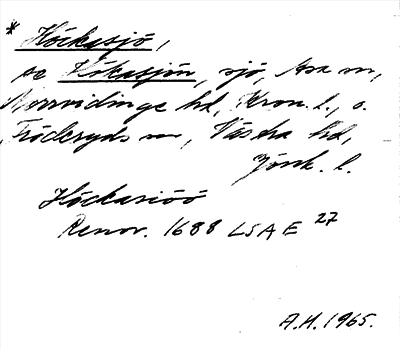 * Höckasjö,
se Hökasjön, sjö, Asa sn,
Norrvidinge hd, Kron. l., o.
Fröderyds sn, Västra hd,
Jönk. l.
Höckasiöö
Renov. 1688 LSAE 27
A.H. 1965.